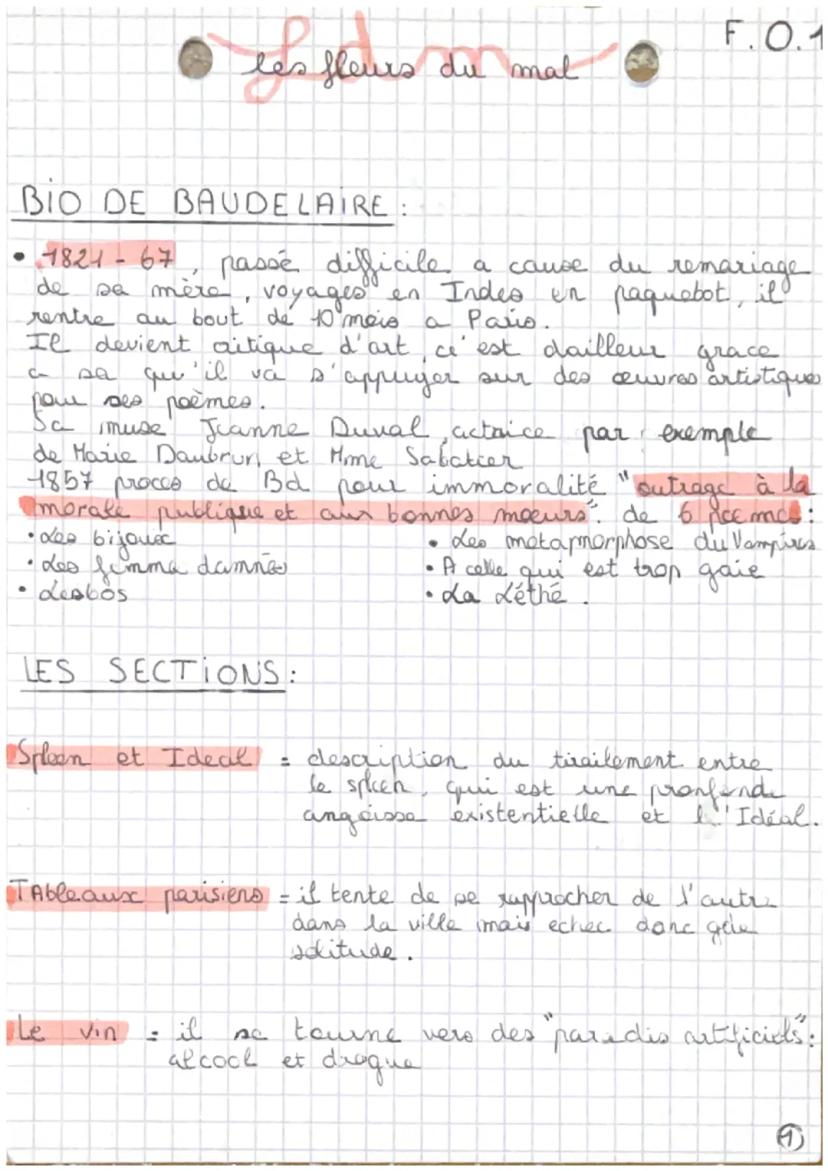 F.O.1
Ldm
les fleurs du mal
BIO DE BAUDELAIRE :
• 1821 - 67, passé difficile a cause du remariage
de sa mère, voyages en Indes en paquebot, il
rentre au bout de 10 mois a Paris.
Il devient critique d'art, c'est dailleur grace
a sa qu'il va s'appuyer sur des œuvres artistiques
pour ses poèmes.
Sa muse Jeanne Duval, actrice par exemple
de Marie Daubrun et Mme Sabatier
1857 procés de Bd pour immoralité "outrage à la
morale publique et aux bonnes moeurs". de 6 poemes :
• Les bijoux
• Les métamorphose du Vampires
• Les femma damnées
• A celle qui est trop gaie
• Lesbos
• La Léthé.
LES SECTIONS :
Spleen et Ideal = description du tirailement entre
le spleen, qui est une pronfonde
angoisse existentielle et l'Idéal.
TAbleaux parisiens = il tente de se rapprocher de l'autre
dans la ville mais echec donc gde
solitude.
Le vin = il se tourne vers des "paradis artificiels":
alcool et drogue
1